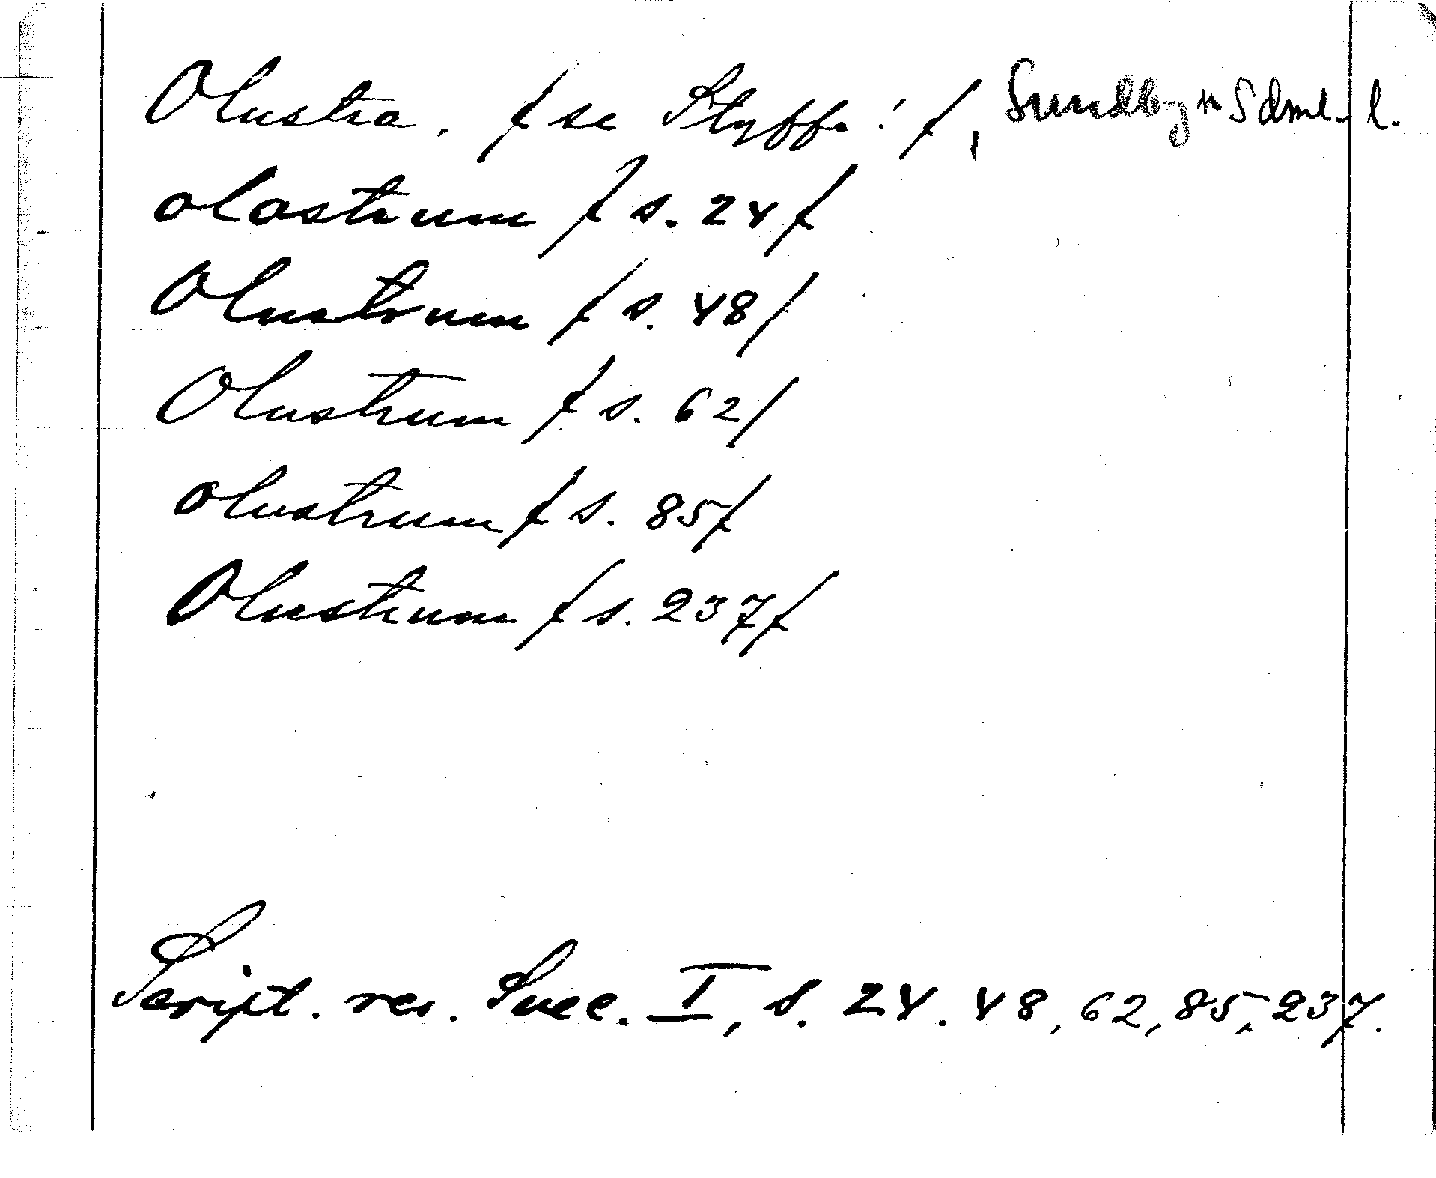 Olustra. / se Styffe! /, Sundby sn Sdml. l.
olastrum / s. 24 /
Olustrum / s. 48 /
Olustrum / s. 62 /
olustrum / s. 85 /
Olustrum / s. 237 /
Script. rer. Svec. I, s. 24. 48, 62, 85, 237.